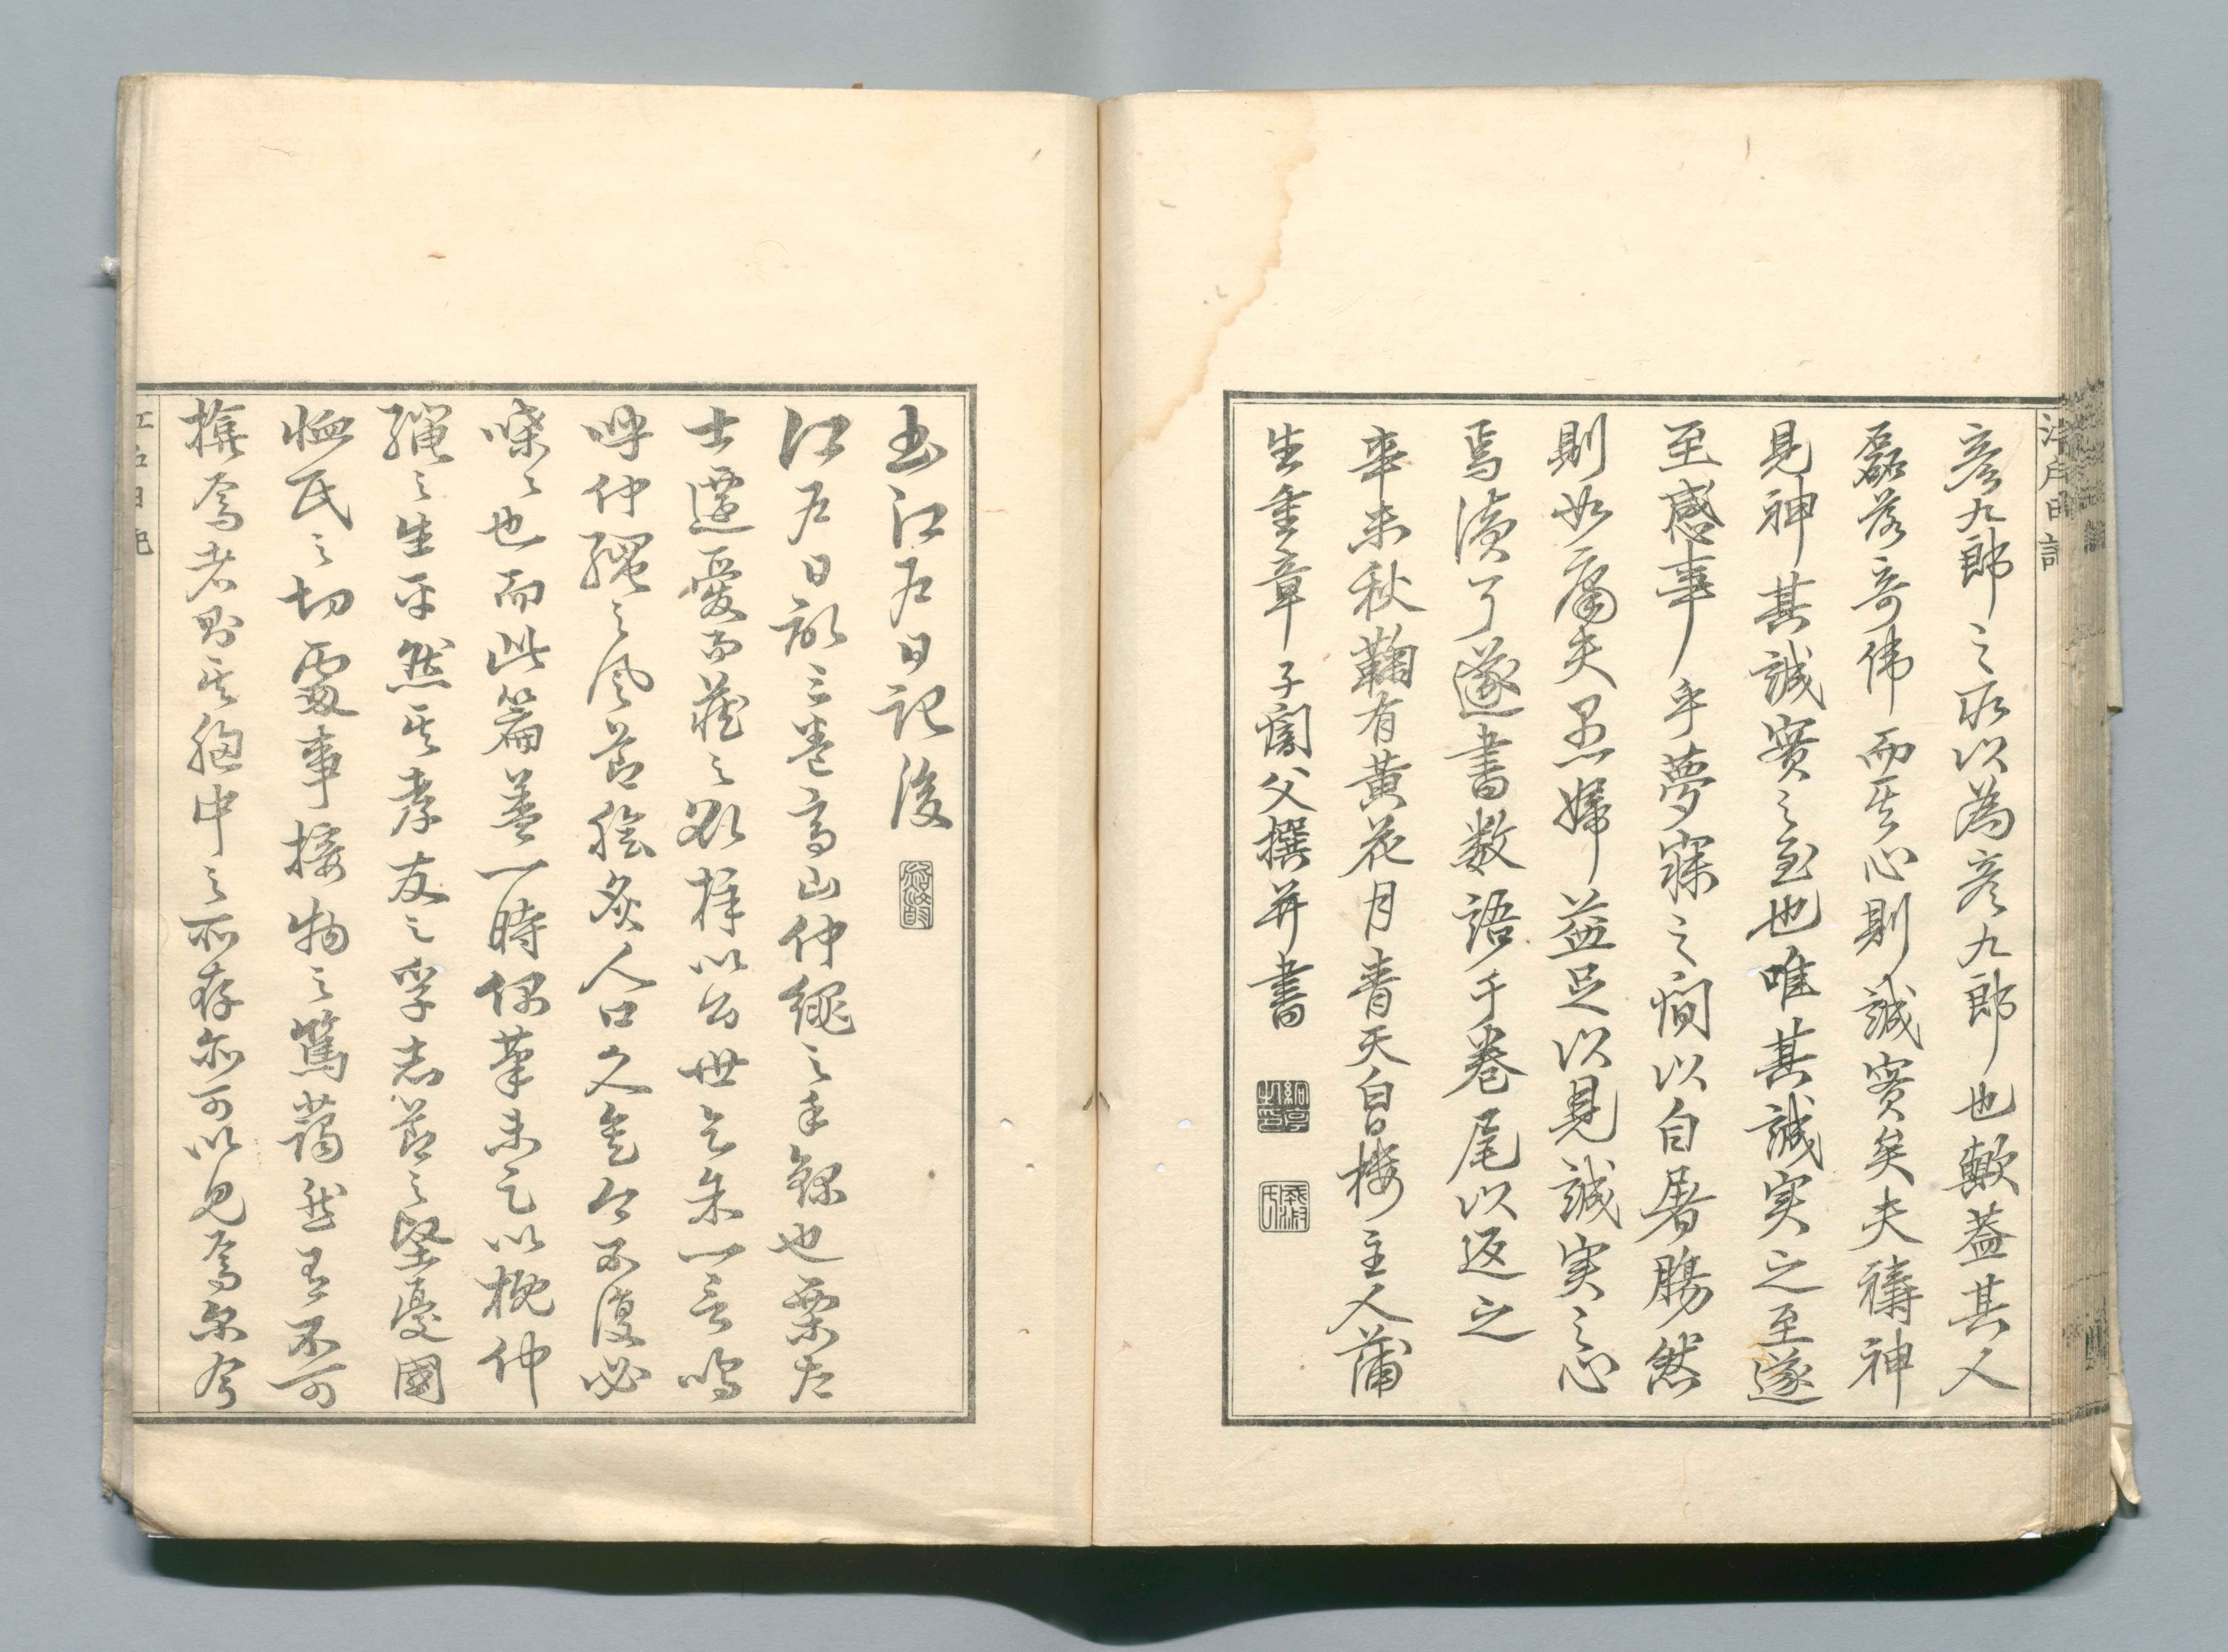 彦九郎之所以為彦九郎也歟蓋其人
磊落奇偉而其心則誠實矣夫禱神
見神其誠實之至也唯其誠実之至遂
至感事乎夢寐之間以白屠腸然
則如庸夫愚婦益足以見誠実之心
焉讀了遂書数語于巻尾以返之
辛未秋鞠有黄花月青天白日楼主人蒲
生重章子闇父撰并書
書江右日記後
江右日記三巻高山仲繩之手録也栗左
士遷愛而蔵之欲梓以公世乞余一言嗚
呼仲繩之風節膾炙人口久矣今不復必
喋々也而此篇蓋一時偶筆未足以概仲
繩之生平然其孝友之孚志節之堅憂國
恤民之切處事接物之篤藹然有不可
掩焉者則其胸中之所存亦可以見焉尓今
江右日記